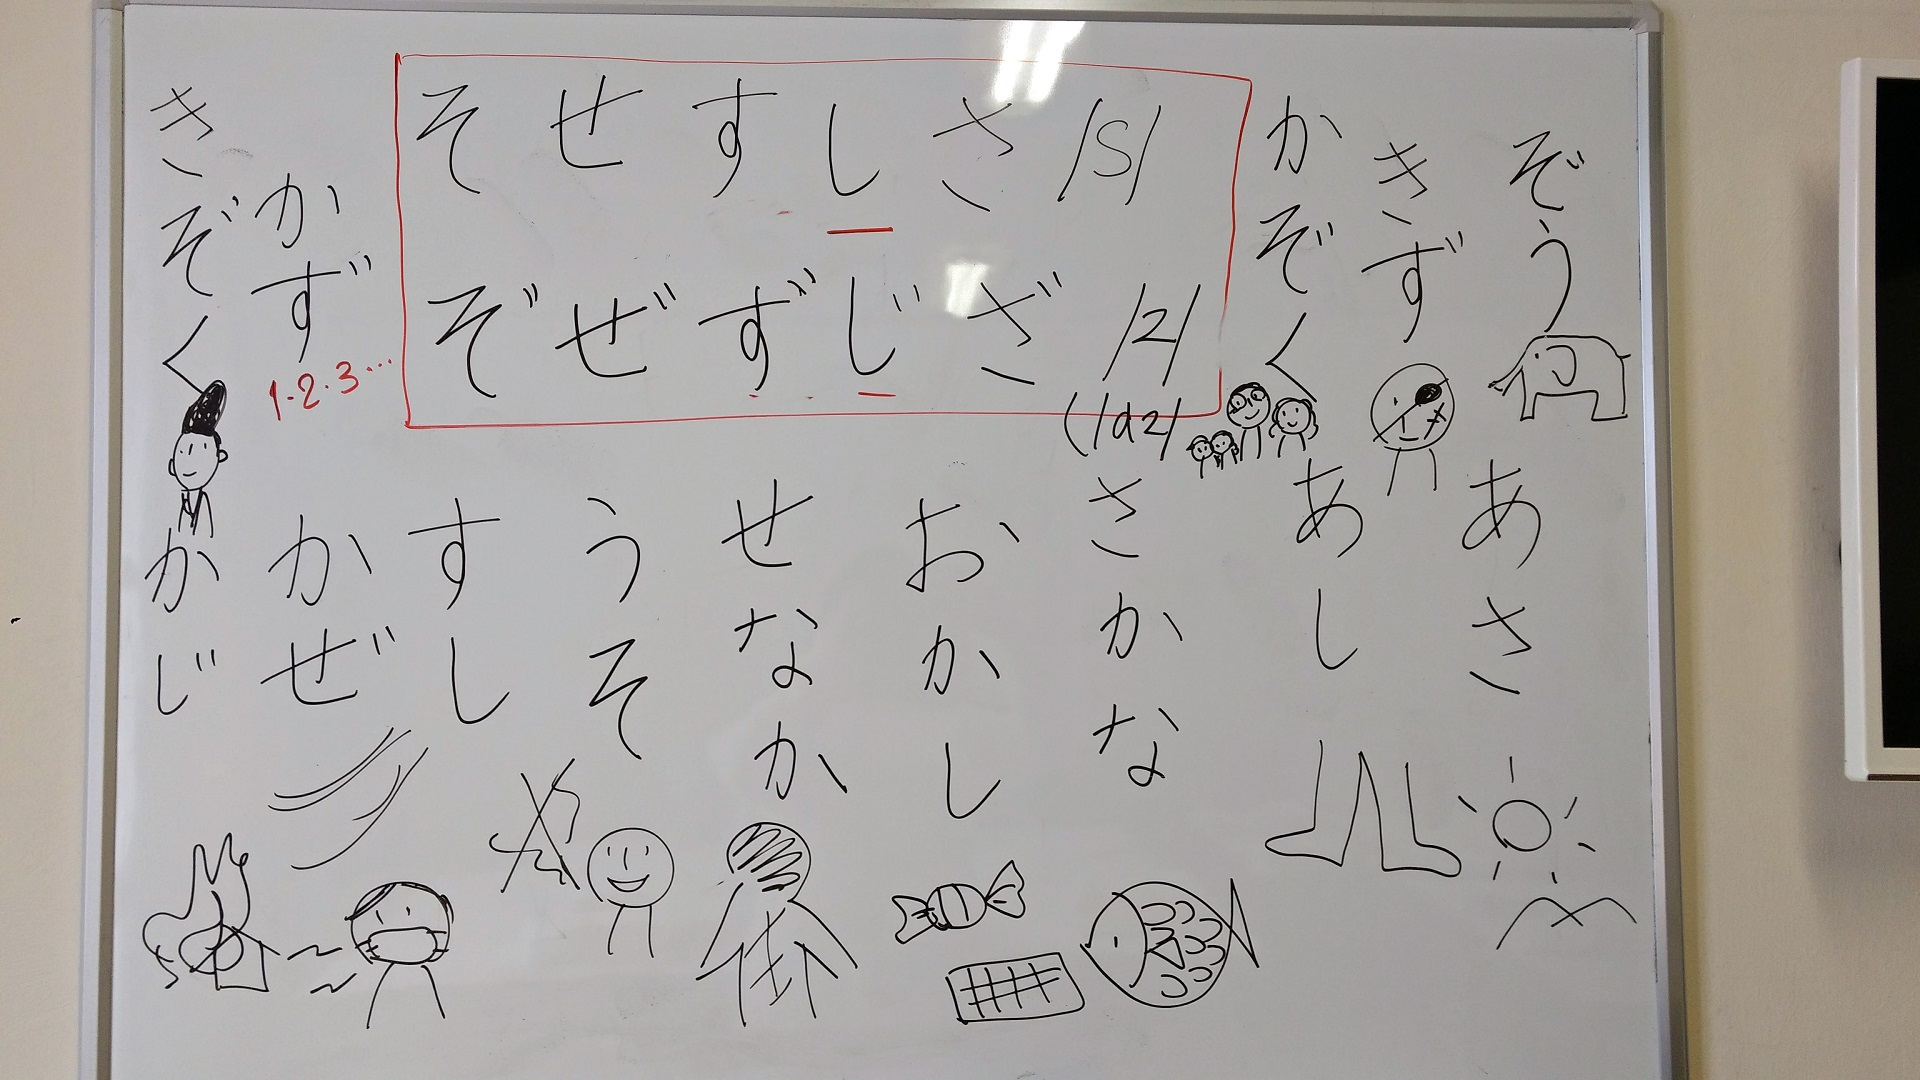 ぞう
きず
かぞく
/s/ さ し す せ そ
/z/ ざ じ ず ぜ ぞ
(/dz/
かず
1・2・3…
きぞく
あさ
あし
さかな
おかし
せなか
うそ
すし
かぜ
かじ